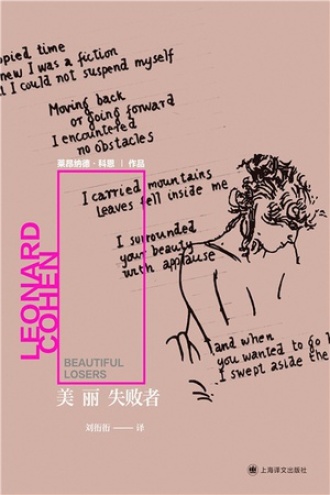 opied time
new I was a fiction
I could not suspend myself
Moving back
or going forward
I encountered
no obstacles
莱昂纳德·科恩 | 作品
I carried mountains
Leaves fell inside me
I surrounded
your beauty
with applause
LEONARD
COHEN
and when
you wanted to go
I swept aside the
BEAUTIFUL
LOSERS
美丽失败者
刘衎衎——译
上海译文出版社